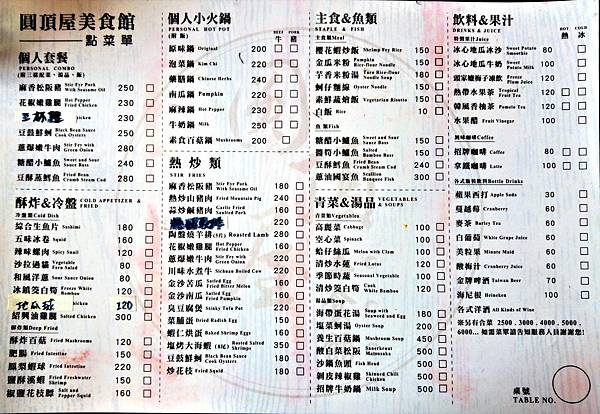 圓頂屋美食館
點菜單
個人套餐
PERSONAL COMBO
(附三樣配菜、湯品、飯)
麻香松阪豬 Stir Fry Pork With Sesame Oil 250
花椒嫩雞腿 Hot Pepper Fried Chicken 230
三杯雞 chicken 230
豆鼓鮮蚵 Black Bean Sauce Cook Oysters 230
蔥爆嫩牛肉 Stir Fry with Green Onion 230
糖醋小鱸魚 Sweet and Sour Sauce Bass 240
豆酥蒸鱈魚 Fried Bean Crumb Steam Cod 280
酢炸&冷盤 COLD APPETIZER & FRIED
冷盤類Cold Dish
綜合生魚片 Sashimi 180
五味冰卷 Squid 160
辣味螺肉 Spicy Snail 120
沙拉過貓 Vegetable Fern Salad 80
和風洋蔥 Sour Sauce Onion 80
冰鎮茭白筍 Freeze White Bamboo 120
地瓜球 chicken 120
紹興油雞腿 Salted Chicken 300
酥炸類Deep Fried
酥炸百菇 Fried Mashrooms 120
肥腸 Fried Intestine 150
鳳梨蝦球 Fried Intestine 220
鹽酥溪蝦 Fried Freshwater Shrimp 150
椒鹽花枝膘 Salt and Pepper Squid 150
個人小火鍋
PERSONAL HOT POT
(附飯)
BEEF 牛 PORK 豬
原味鍋 Original 200
泡菜鍋 Kim Chi 220
藥膳鍋 Chinese Herbs 240
南瓜鍋 Pumpkin 220
麻辣鍋 Hot Pepper 230
牛奶鍋 Milk 250
素食百菇鍋 Mushrooms 200
熱炒類
STIR FRIES
麻香松阪豬 Stir Fry Pork With Sesame Oil 180
熱炒山豬肉 Fried Mountain Pig 240
蒜炒鹹豬肉 Garlic Fried Saulted Pork 150
220
陶盤燒羊排(5片) Roasted Lamb 280
花椒嫩雞腿 Hot Pepper Fried Chicken 160
蔥爆嫩牛肉 Stir Fry with Green Onion 160
川味水煮牛 Sichuan Boiled Cow 220
金沙苦瓜 Salted Egg Fried Bitter Melon 160
金沙南瓜 Salted Egg Fried Pumpkin 160
臭豆腐煲 Stinky Tofu Pot 220
菜脯蛋 Dried Radish Egg 150
蝦仁烘蛋 Baked Shrimp Eggs 160
塩烤大海蝦(8尾) Roasted Salted Shrimp 350
豆鼓鮮蚵 Black Bean Sauce Cook Oysters 160
炒花枝 Fried Squid 180
主食&魚類
STAPLE & FISH
主食類Meal
櫻花蝦炒飯 Shrimp Fry Rice 150
金瓜米粉 Pumpkin Rice-flour Noodle 150
芋香米粉湯 Taro Rice-flour Noodle Soup 180
蚵仔麵線 Oyster Noodle 150
素鮮蔬燴飯 Vegetarian Risotto 150
白飯 Rice 10
魚類Fish
糖醋小鱸魚 Sweet and Sour Sauce Bass 180
醬筍小鱸魚 Salted Bamboo Bass 180
豆酥鱈魚 Fried Bean Crumb Cod 240
蔥油闊宴魚 Scallion Banquee Fish 300
青菜&湯品 VEGETABLES & SOUPS
青菜類Vegetables
高麗菜 Cabbage 100
空心菜 Spinach 100
蛤仔絲瓜 Melon with Clam 100
清炒水蓮 Fried Lotus 120
季節時蔬 Seasonal Vegetable 100
清炒茭白筍 Cook White Bamboo 120
湯品類Soup
海帶蛋花湯 Soup with Seaweed and Egg 180
塩菜蚵湯 Oyster Soup 200
養生百菇鍋 Mushroom Soup 450
酸白菜松阪 Sauerkraut Matusaka 500
沙鍋魚頭 Fish Head 500
剝皮辣椒雞 Skinned Chili Chicken 500
招牌牛奶鍋 Milk Soup 500
飲料&果汁
DRINKS & JUICE
特製果汁Juice
HOT 熱 COLD 冰
冰心地瓜冰沙 Sweet Potato Smoothie 80
冰心地瓜牛奶 Sweet Potato Milk 100
頭家嬤梅子凍飲 Freeze Plum Juice 120
熱帶水果茶 Tropical Fruit Tea 120
韓風香柚茶 Pomelo Tea 120
水果醋 Fruit Vinegar 100
風味咖啡Coffee
招牌咖啡 Coffee 80
拿鐵咖啡 Latte 100
各式瓶裝飲料Bottle Drinks
蘋果西打 Apple Soda 30
蔓越莓 Cranberry 60
麥茶 Barley Tea 60
白葡萄 White Grape Juice 60
美粒果 Minute Maid 60
酸梅汁 Cranberry Juice 60
金牌啤酒 Taiwan Beer 70
海尼根 Heineken 100
各式洋酒 All Kinds of Wine
※另有合菜 2500．3000．4000．5000．
6000...如需菜單請告知服務人員謝謝您!
桌號
TABLE NO.